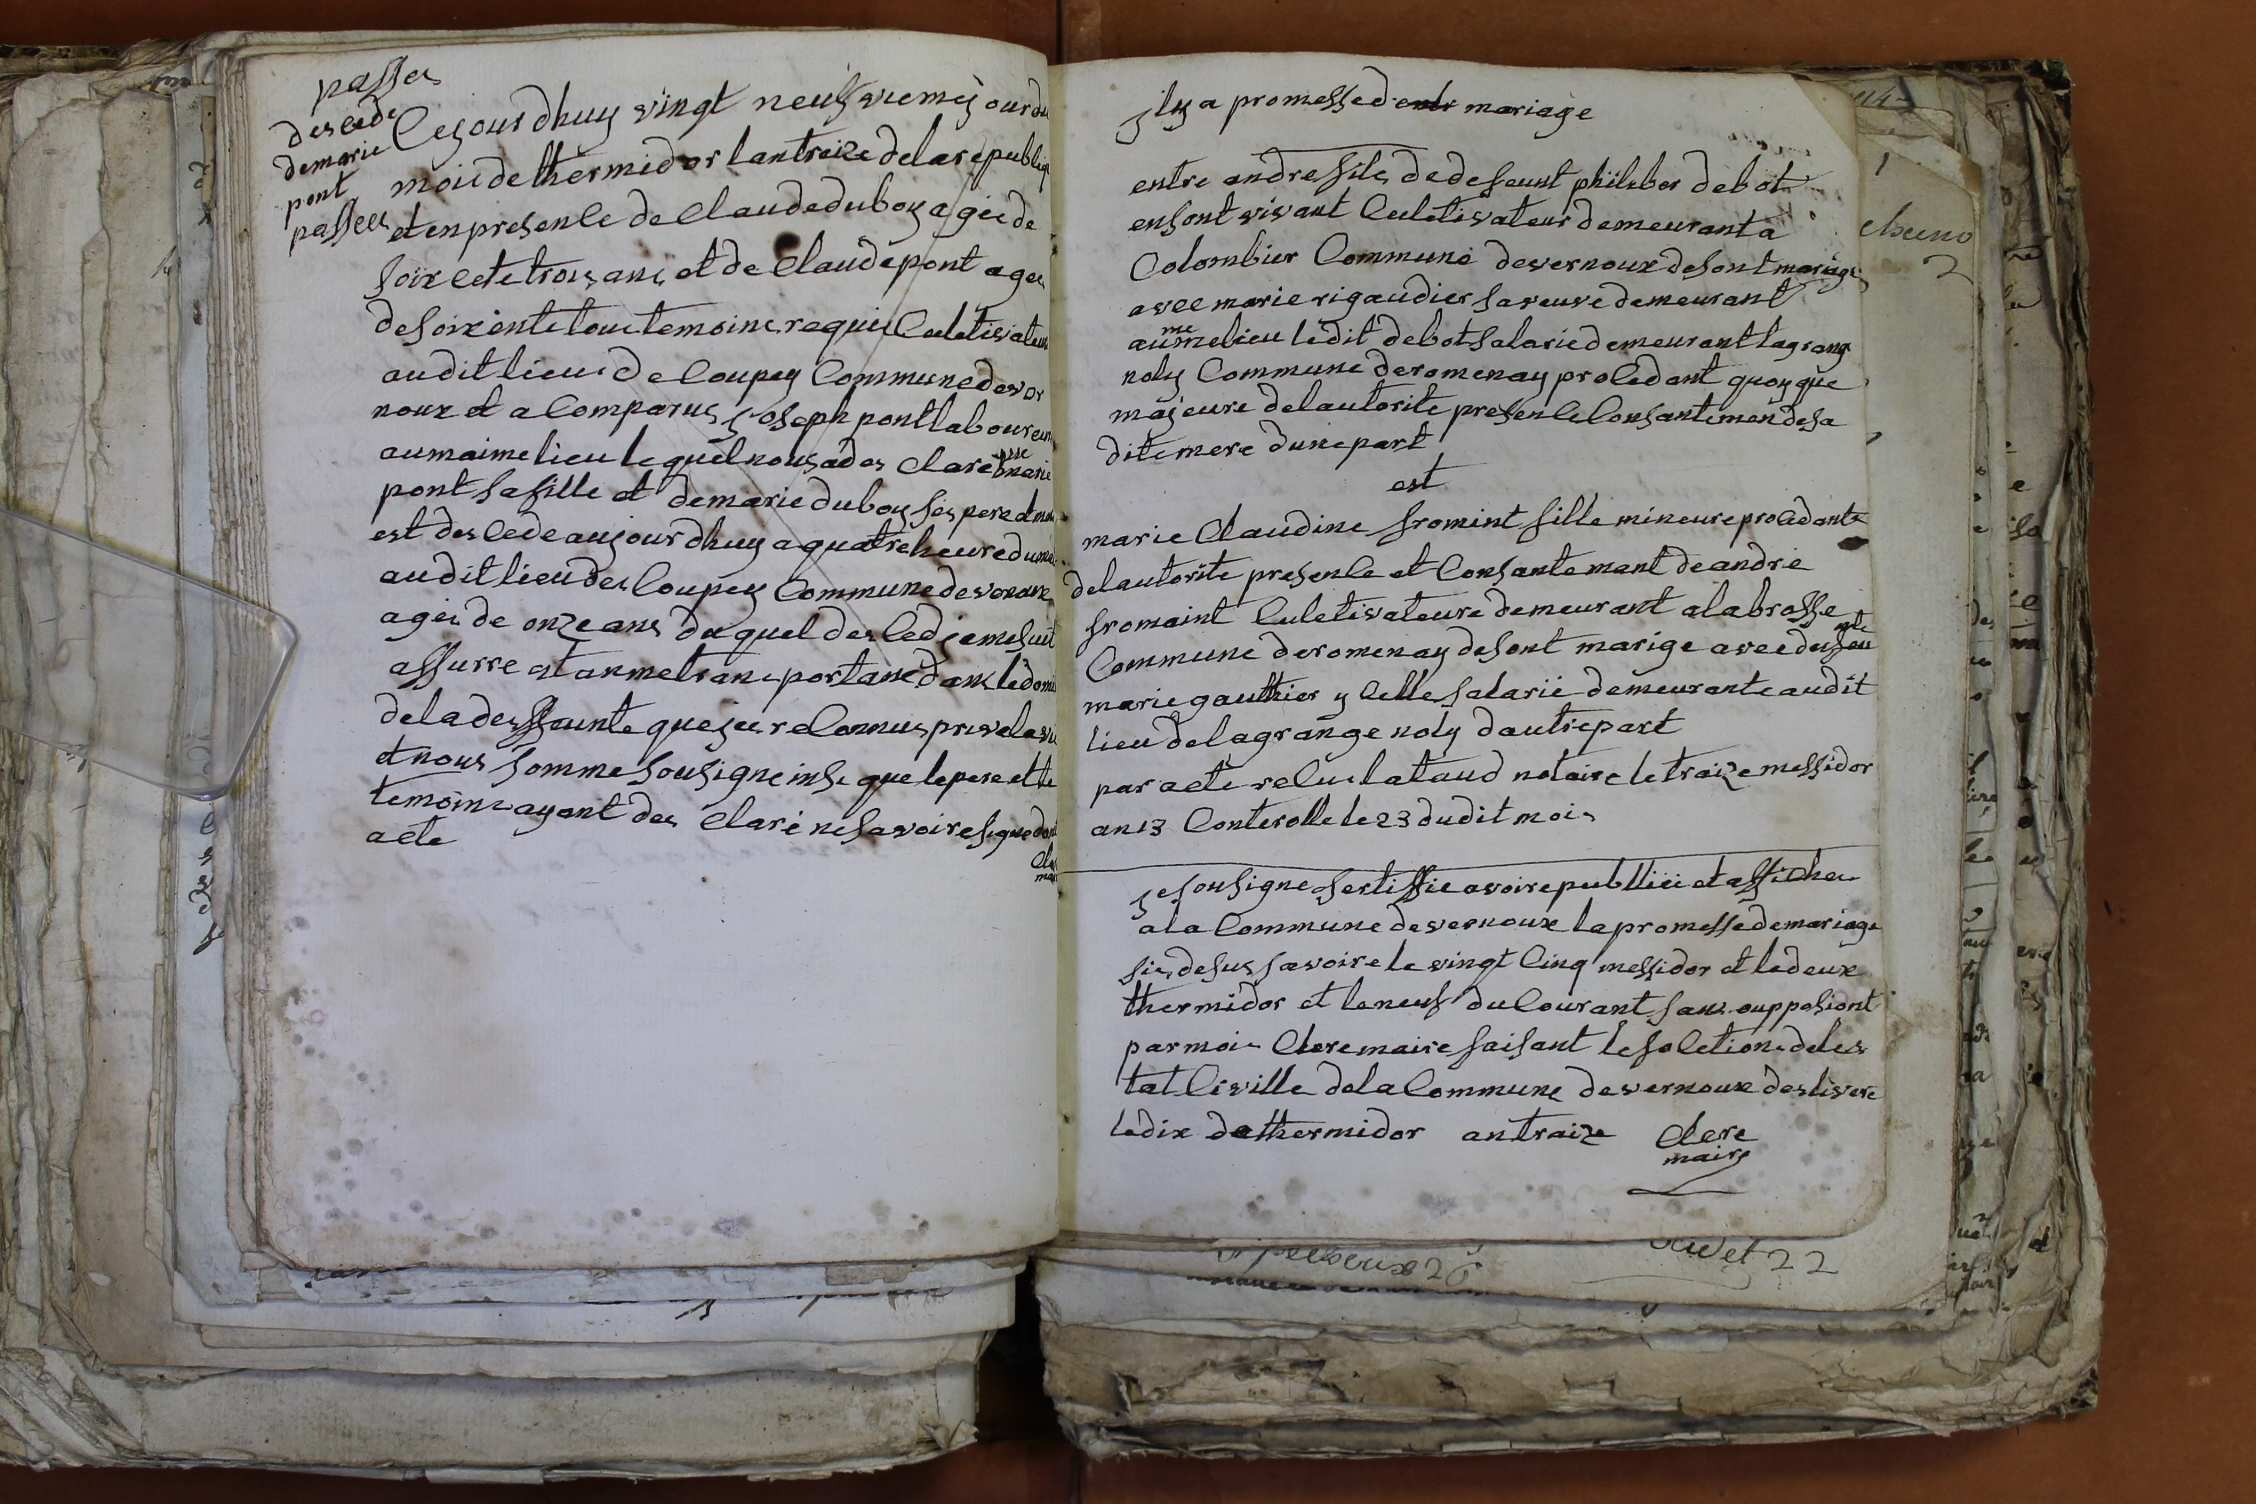 passer
descede
demarie
pont
passees
Cejourdhuy vingt neufvieme jour du
mois de thermidor lan traize dela republiq
et en presence de Claude duboy agée de
soixcete trois ans et de Claude pont agee
de soixente tous temoins requis Culetivateur
audit lieu de Coupey Commune de ver
noux et a Comparus joseph pont laboureur
au maime lieu lequel nous a des claré que marie
pont sa fille et de marie duboy ses pere et mere
est descede aujourdhuy a quatre heure du
audit lieu des Coupey Commune de vernoux
ageé de onze ans duquel desced je me suit
assurre et an me transportant dans le domi
dela desffunte que jee reConnus privé la vi
et nous somme sousigne insi que le pere et le
temoins ayant des claré ne savoire signe dont
acte
Cler
mair
jly a promesse d mariage
entre andre fils de defeunt philiber debot
en sont vivant Culetivateur demeurant a
Colombier Commune de vernoux de sont mariage
avec marie rigaudier sa veuve demeurant
au me
melieu ledit debot salarie demeurant lagrange
noly Commune de romenay procedant quoyque
majeure de lautorite presence Consantemen de sa
dite mere dune part
est
marie Claudine fromint fille mineure procedante
de lautorite presence et Consantement de andrie
fromaint Culetivateure demeurant ala brosse
Commune de romenay de sont marige avec defeunte
marie gauthier ycelle salariè demeurante audit
lieu de lagrange noly dautre part
par acte relus lataud notaire le traize messidor
an 13 Conterolle le 23 dudit mois
je sousigne sertiffie avoire publlieé et affichee
a la Commune de vernoux la promesse de mariage
sie desus savoire le vingt Cinq messidor et le deux
thermidor et le neuf du Courant sans oupposiont
par moie Clere maire faisant le foCetions de les
tat Civille de la Commune de vernoux deslivere
le dix de thermidor an traize Clere
maire